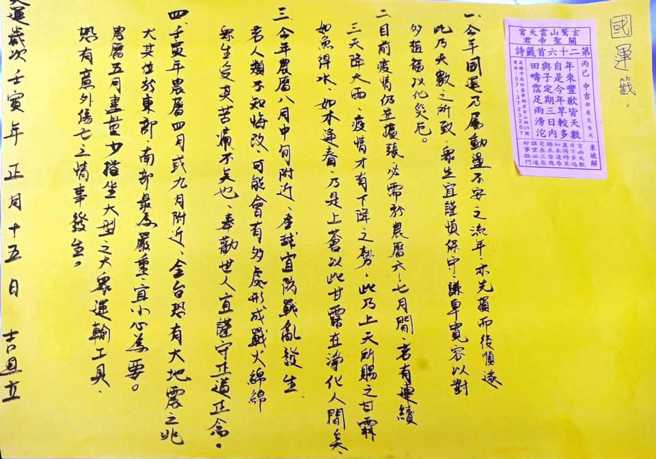 國運籤．
玄鷲山雲天宮
關聖帝君
第二十六首籤詩
丙己　中吉
年來豐歉皆天數
自是今年旱較多
與子定期三日內
田疇霑足雨滂沱
一、今年國運乃屬動盪不安之流年，亦先損而後慎遠
此乃天數之所致，眾生宜謹慎保守，謙卑寬容以對
方趨福以化災厄。
二、目前疫情仍在擴張，必需於農曆六、七月間，若有連續
三天降大雨，疫情才有下降之勢，此乃上天所賜之甘霖
如魚得水，如木逢春，乃是上蒼以此甘露在淨化人間矣。
三、今年農曆八月中旬附近，全球宜防戰亂發生，
若人類不知悔改，可能會有多處形成戰火綿綿
眾生受其苦痛不矣也，奉勸世人宜謹守正道正念。
四、壬寅年農曆四月或九月附近，全台恐有大地震之兆
尤其位於東部、南部最為嚴重，宜小心為要。
農曆五月盡量少搭坐大型之大眾運輸工具，
恐有意外傷亡之情事發生。
天運歲次壬寅年正月十五日 吉旦立